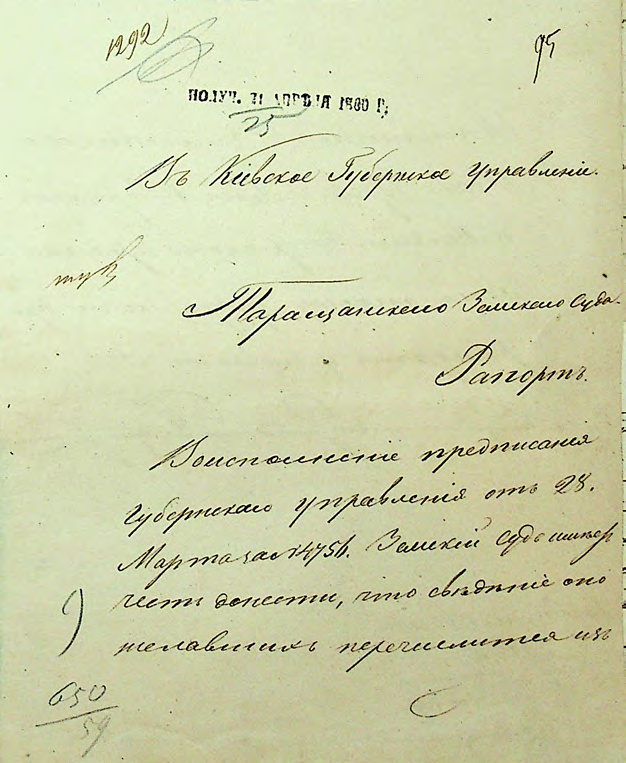 1292
95
ПОЛУЧ. 21 АПРѢЛЯ 1860 Г.
25
Въ Кіевское Губернское Управленіе.
Таращанскаго Земскаго Суда.
Рапортъ.
Воисполненіе предписанія
Губернскаго управленія отъ 28.
Марта за № 14756. Земскій Судъ имѣетъ
честь донести, что свѣдѣніе о по
желавшихъ перечислится изъ
650
59